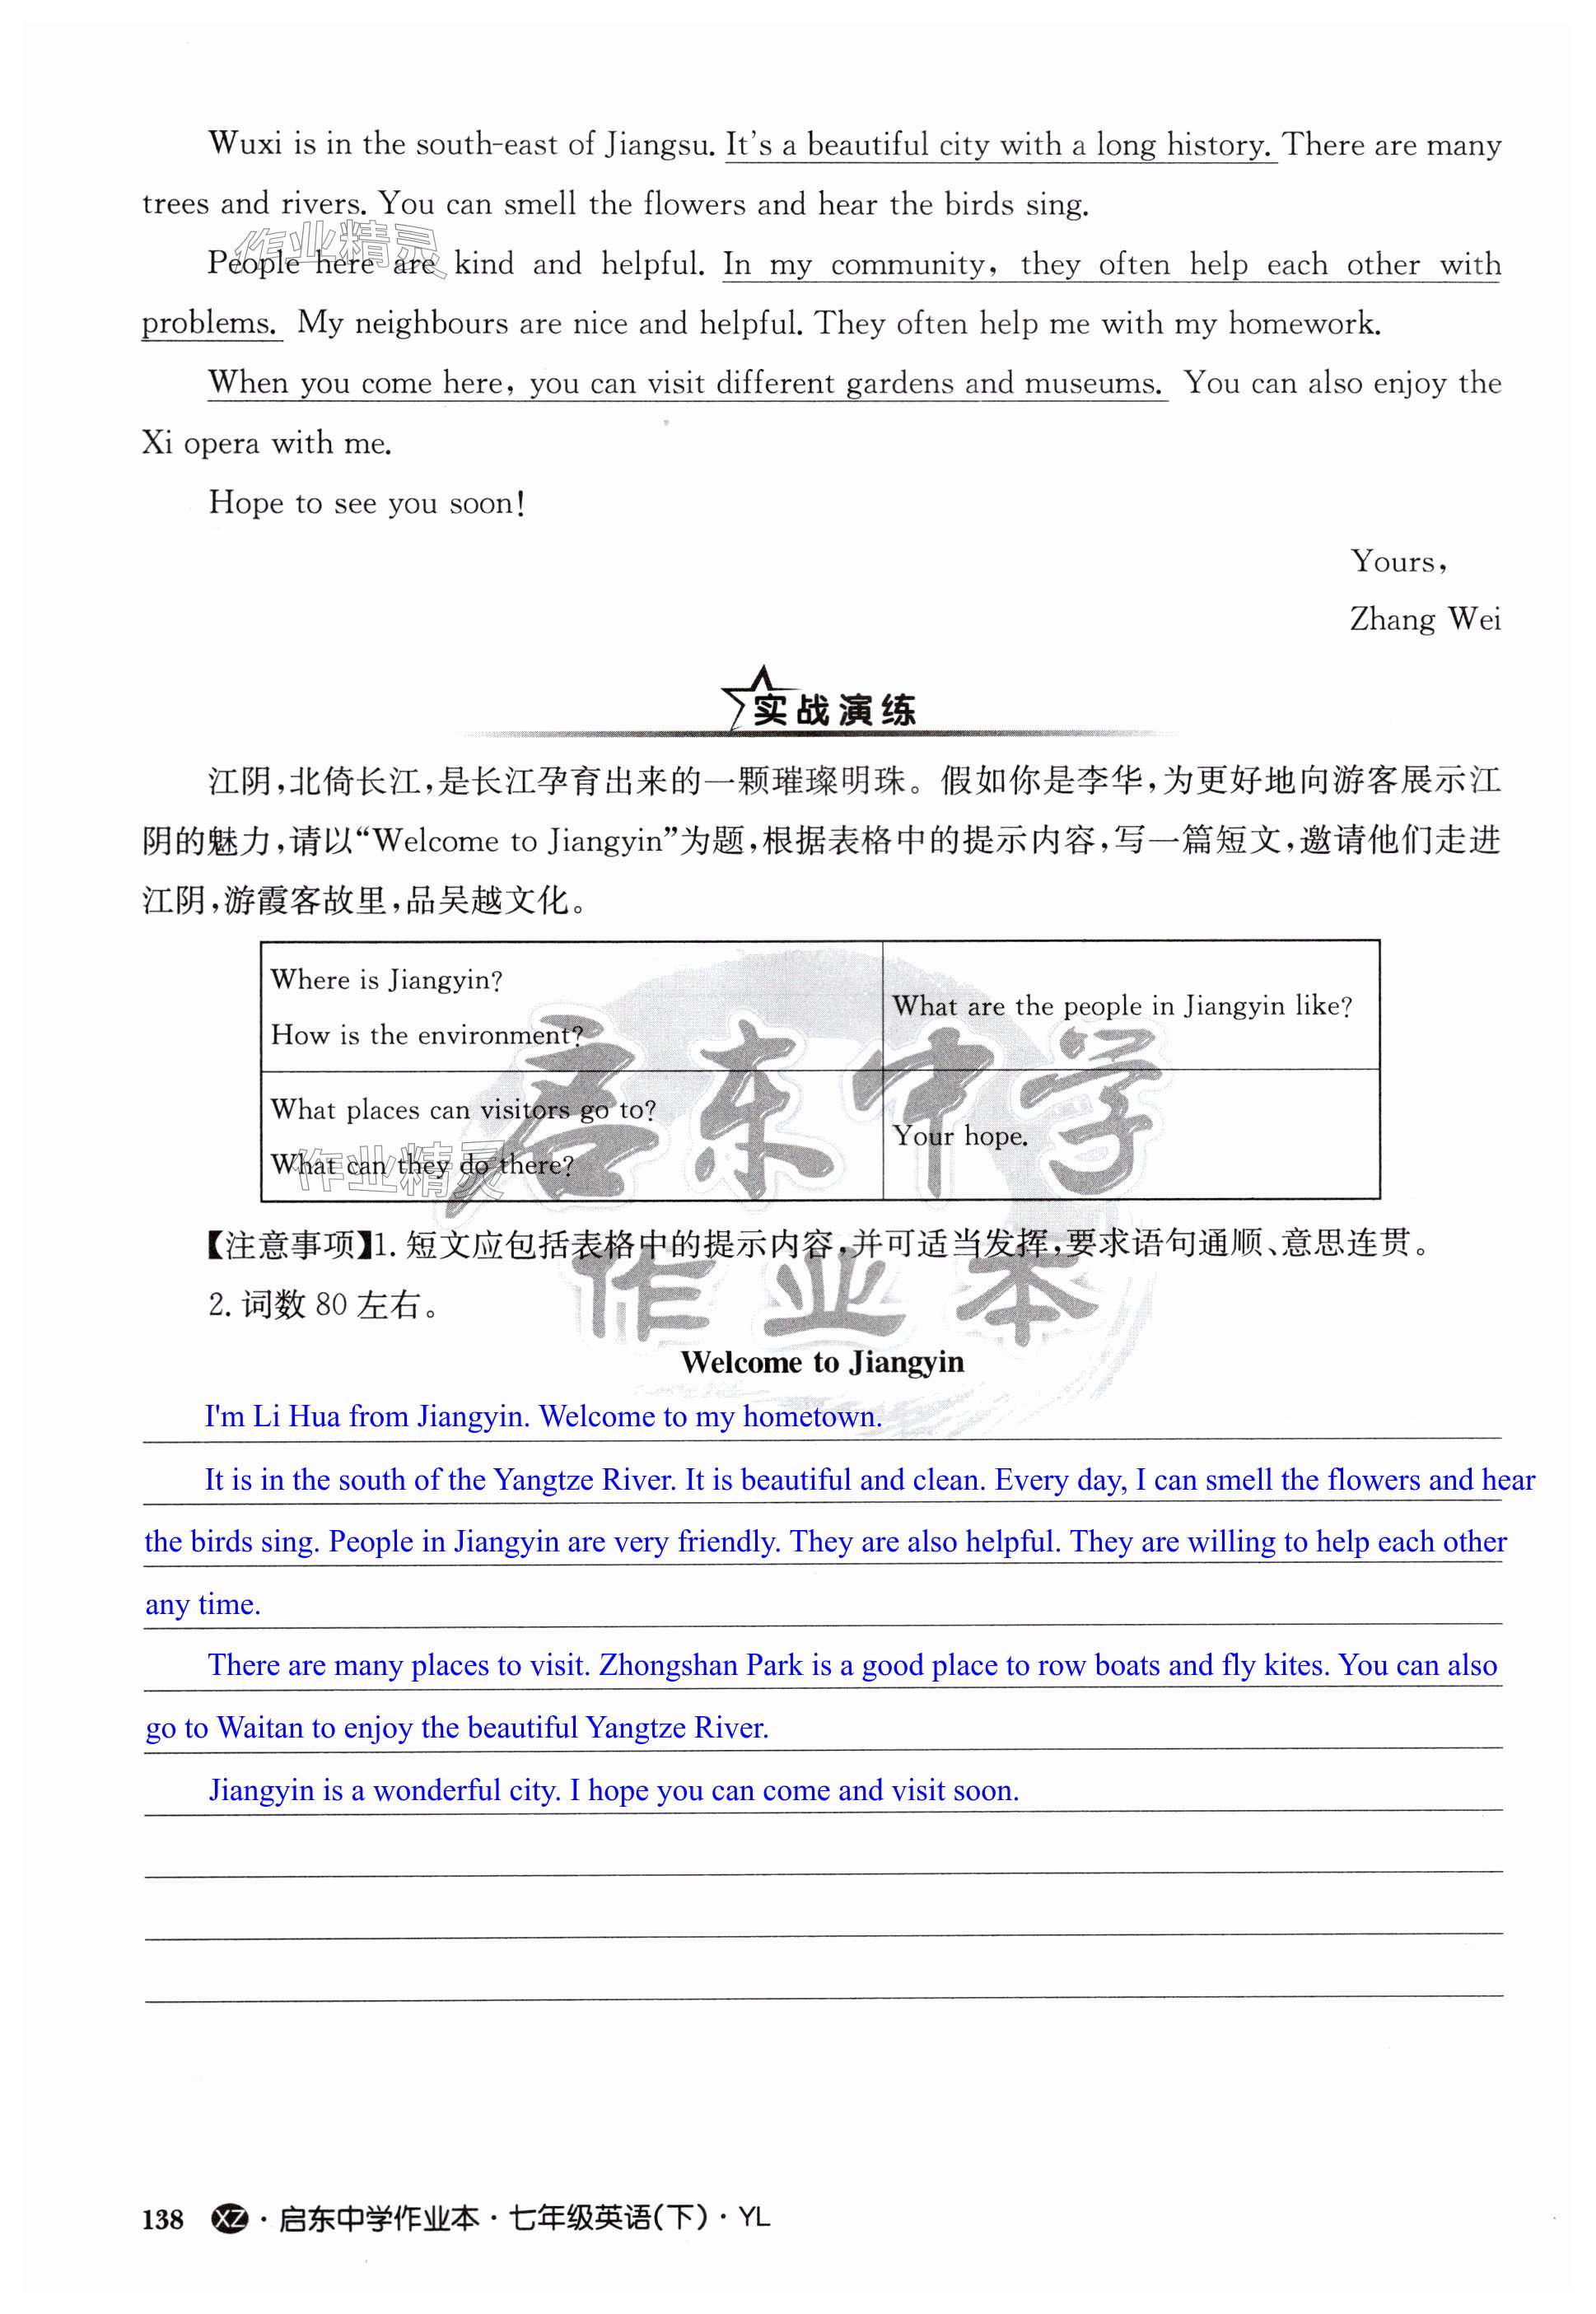 Wuxi is in the south-east of Jiangsu. It's a beautiful city with a long history. There are many
trees and rivers. You can smell the flowers and hear the birds sing.
作业精灵
People here are kind and helpful. In my community, they often help each other with
problems. My neighbours are nice and helpful. They often help me with my homework.
When you come here, you can visit different gardens and museums. You can also enjoy the
Xi opera with me.
Hope to see you soon!
Yours,
Zhang Wei
实战演练
江阴,北倚长江,是长江孕育出来的一颗璀璨明珠。假如你是李华,为更好地向游客展示江
阴的魅力,请以“Welcome to Jiangyin”为题,根据表格中的提示内容,写一篇短文,邀请他们走进
江阴,游霞客故里,品吴越文化。
Where is Jiangyin?
How is the environment?
What are the people in Jiangyin like?
What places can visitors go to?
What can they do there?
Your hope.
作业精灵
启东中学
作业本
【注意事项】1. 短文应包括表格中的提示内容,并可适当发挥,要求语句通顺、意思连贯。
2. 词数 80 左右。
Welcome to Jiangyin
I'm Li Hua from Jiangyin. Welcome to my hometown.
It is in the south of the Yangtze River. It is beautiful and clean. Every day, I can smell the flowers and hear
the birds sing. People in Jiangyin are very friendly. They are also helpful. They are willing to help each other
any time.
There are many places to visit. Zhongshan Park is a good place to row boats and fly kites. You can also
go to Waitan to enjoy the beautiful Yangtze River.
Jiangyin is a wonderful city. I hope you can come and visit soon.
138 XZ · 启东中学作业本 · 七年级英语(下) · YL